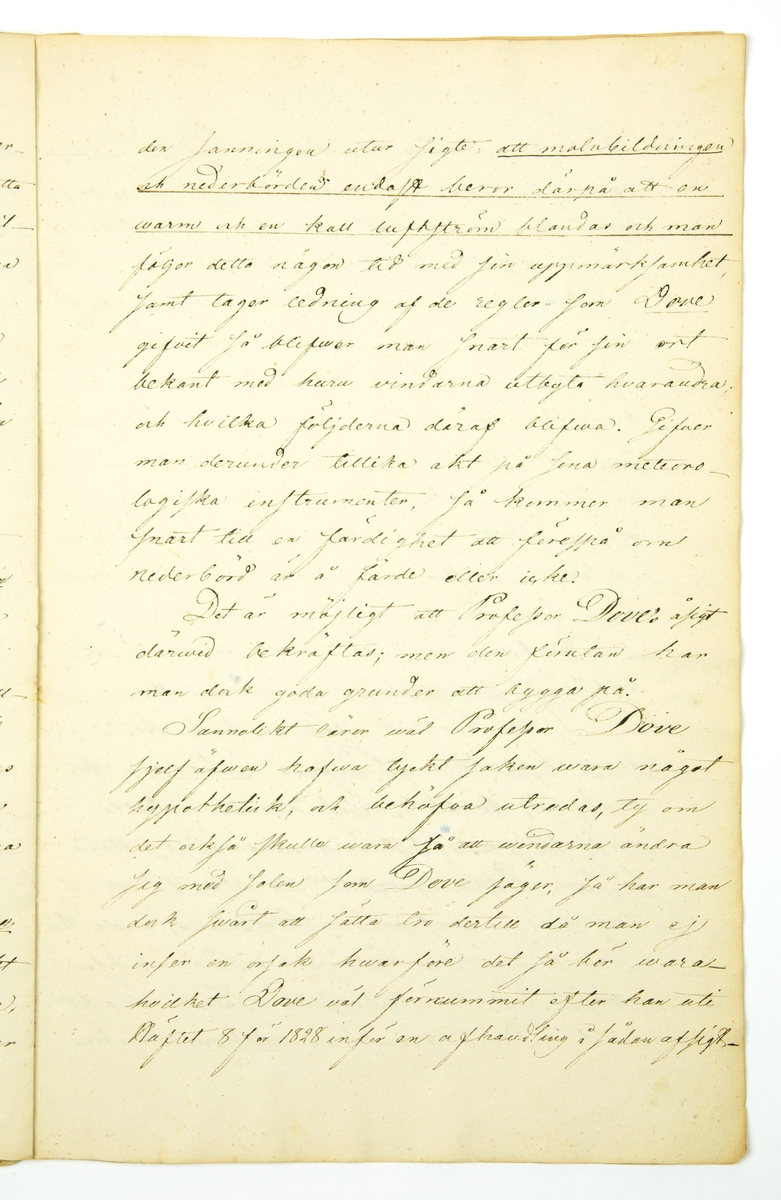 den sanningen utur sigte, att molnbildningen
och nederbörden endast beror därpå att en
warm och en kall luftström blandas och man
följer detta någon tid med sin uppmärksamhet,
samt tager ledning af de regler som Dove
gifvit så blifwer man snart för sin ort
bekant med huru vindarna utbyta hvarandra,
och hvilka följderna däraf blifwa. Gifver
man derunder tillika akt på sina meteoro-
logiska instrumenter, så kommer man
snart till en färdighet att förespå om
nederbörd är å färde eller icke.
Det är möjligt att Professor Dove's åsigt
därwid bekräftas; men den förutan har
man dock goda grunder att bygga på.
Sannolikt lärer wäl Professor Dove
sjelf äfwen hafwa tyckt saken wara något
hypothetisk, och behöfva utredas, ty om
det också skulle wara så att windarna ändra
sig med solen som Dove säger, så har man
dock swårt att sätta tro dertill då man ej
inser en orsak hwarföre det så bör wara –
hvilket Dove väl förnummit efter han uti
Häftet 8 för 1828 inför en afhandling i sådan afsigt –